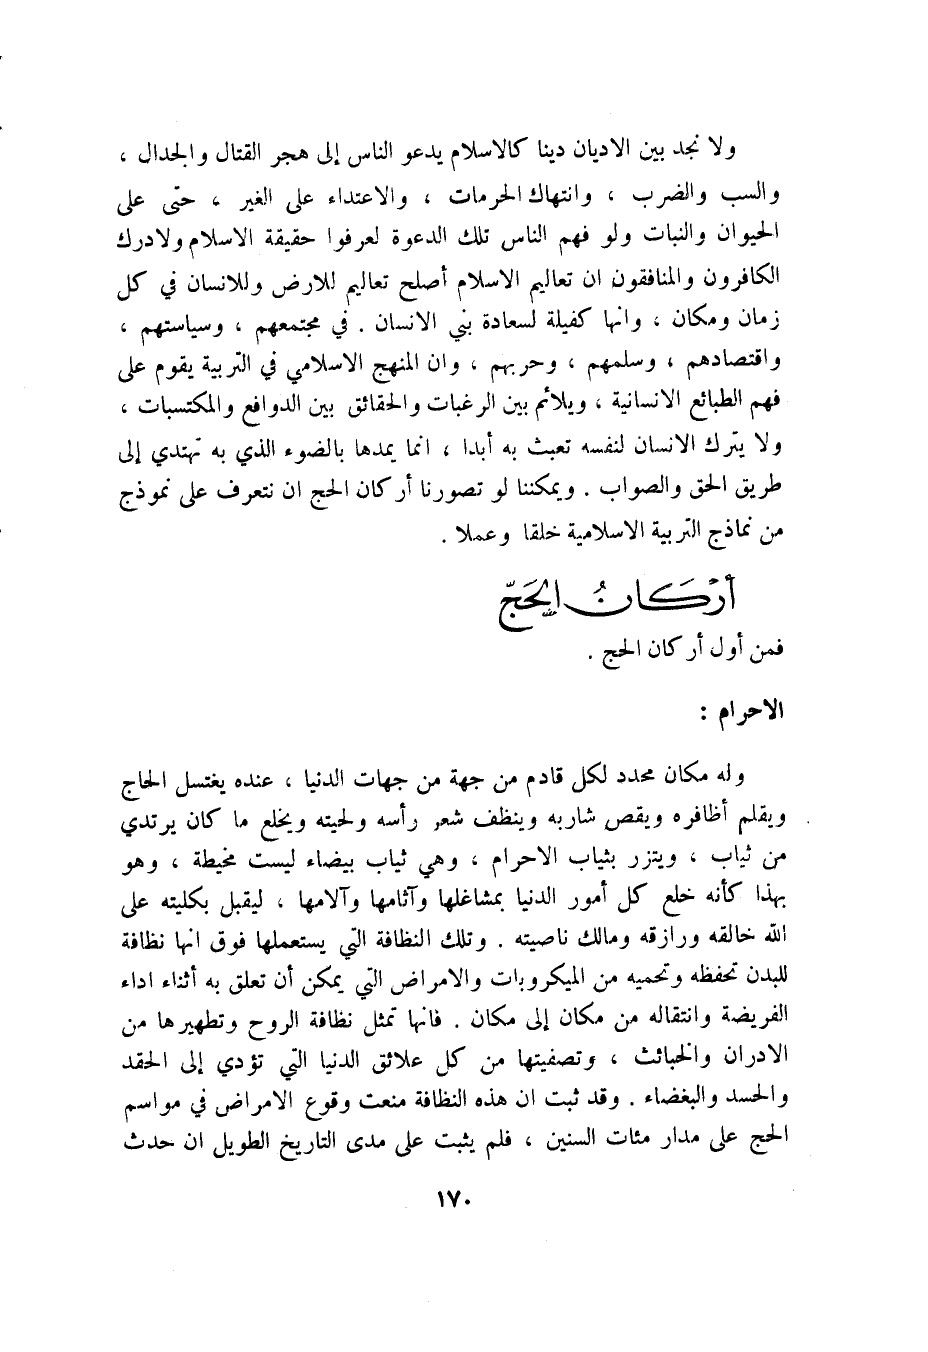 ولا نجد بين الاديان دينا كالاسلام يدعو الناس إلى هجر القتال والجدال ،
والسب والضرب ، وانتهاك الحرمات ، والاعتداء على الغير ، حتى على
الحيوان والنبات ولو فهم الناس تلك الدعوة لعرفوا حقيقة الاسلام ولادرك
الكافرون والمنافقون ان تعاليم الاسلام أصلح تعاليم للارض وللانسان في كل
زمان ومكان ، وانها كفيلة لسعادة بني الانسان . في مجتمعهم ، وسياستهم ،
واقتصادهم ، وسلمهم ، وحربهم ، وان المنهج الاسلامي في التربية يقوم على
فهم الطبائع الانسانية ، ويلائم بين الرغبات والحقائق بين الدوافع والمكتسبات ،
ولا يترك الانسان لنفسه تعبث به أبدا ، انما يمدها بالضوء الذي به تهتدي إلى
طريق الحق والصواب . ويمكننا لو تصورنا أركان الحج ان نتعرف على نموذج
من نماذج التربية الاسلامية خلقا وعملا .
أركانُ الحَجّ
فمن أول أركان الحج .
الاحرام :
وله مكان محدد لكل قادم من جهة من جهات الدنيا ، عنده يغتسل الحاج
ويقلم أظافره ويقص شاربه وينظف شعر رأسه ولحيته ويخلع ما كان يرتدي
من ثياب ، ويتزر بثياب الاحرام ، وهي ثياب بيضاء ليست مخيطة ، وهو
بهذا كأنه خلع كل أمور الدنيا بمشاغلها وآثامها وآلامها ، ليقبل بكليته على
الله خالقه ورازقه ومالك ناصيته . وتلك النظافة التي يستعملها فوق انها نظافة
للبدن تحفظه وتحميه من الميكروبات والامراض التي يمكن أن تعلق به أثناء اداء
الفريضة وانتقاله من مكان إلى مكان . فانها تمثل نظافة الروح وتطهيرها من
الادران والخبائث ، وتصفيتها من كل علائق الدنيا التي تؤدي إلى الحقد
والحسد والبغضاء . وقد ثبت ان هذه النظافة منعت وقوع الامراض في مواسم
الحج على مدار مئات السنين ، فلم يثبت على مدى التاريخ الطويل ان حدث
١٧٠